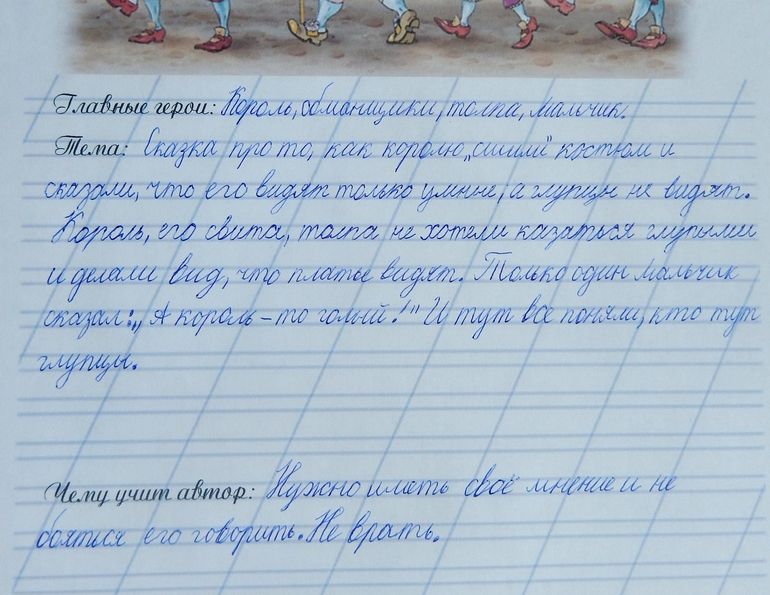 Главные герои: Король, обманщики, толпа, мальчик.
Тема: Сказка про то, как королю „сшили" костюм и
сказали, что его видят только умные, а глупцы не видят.
Король, его свита, толпа не хотели казаться глупыми
и делали вид, что платье видят. Только один мальчик
сказал: „А король-то голый!" И тут все поняли, кто тут
глупцы.
Чему учит автор: Нужно иметь своё мнение и не
бояться его говорить. Не врать.